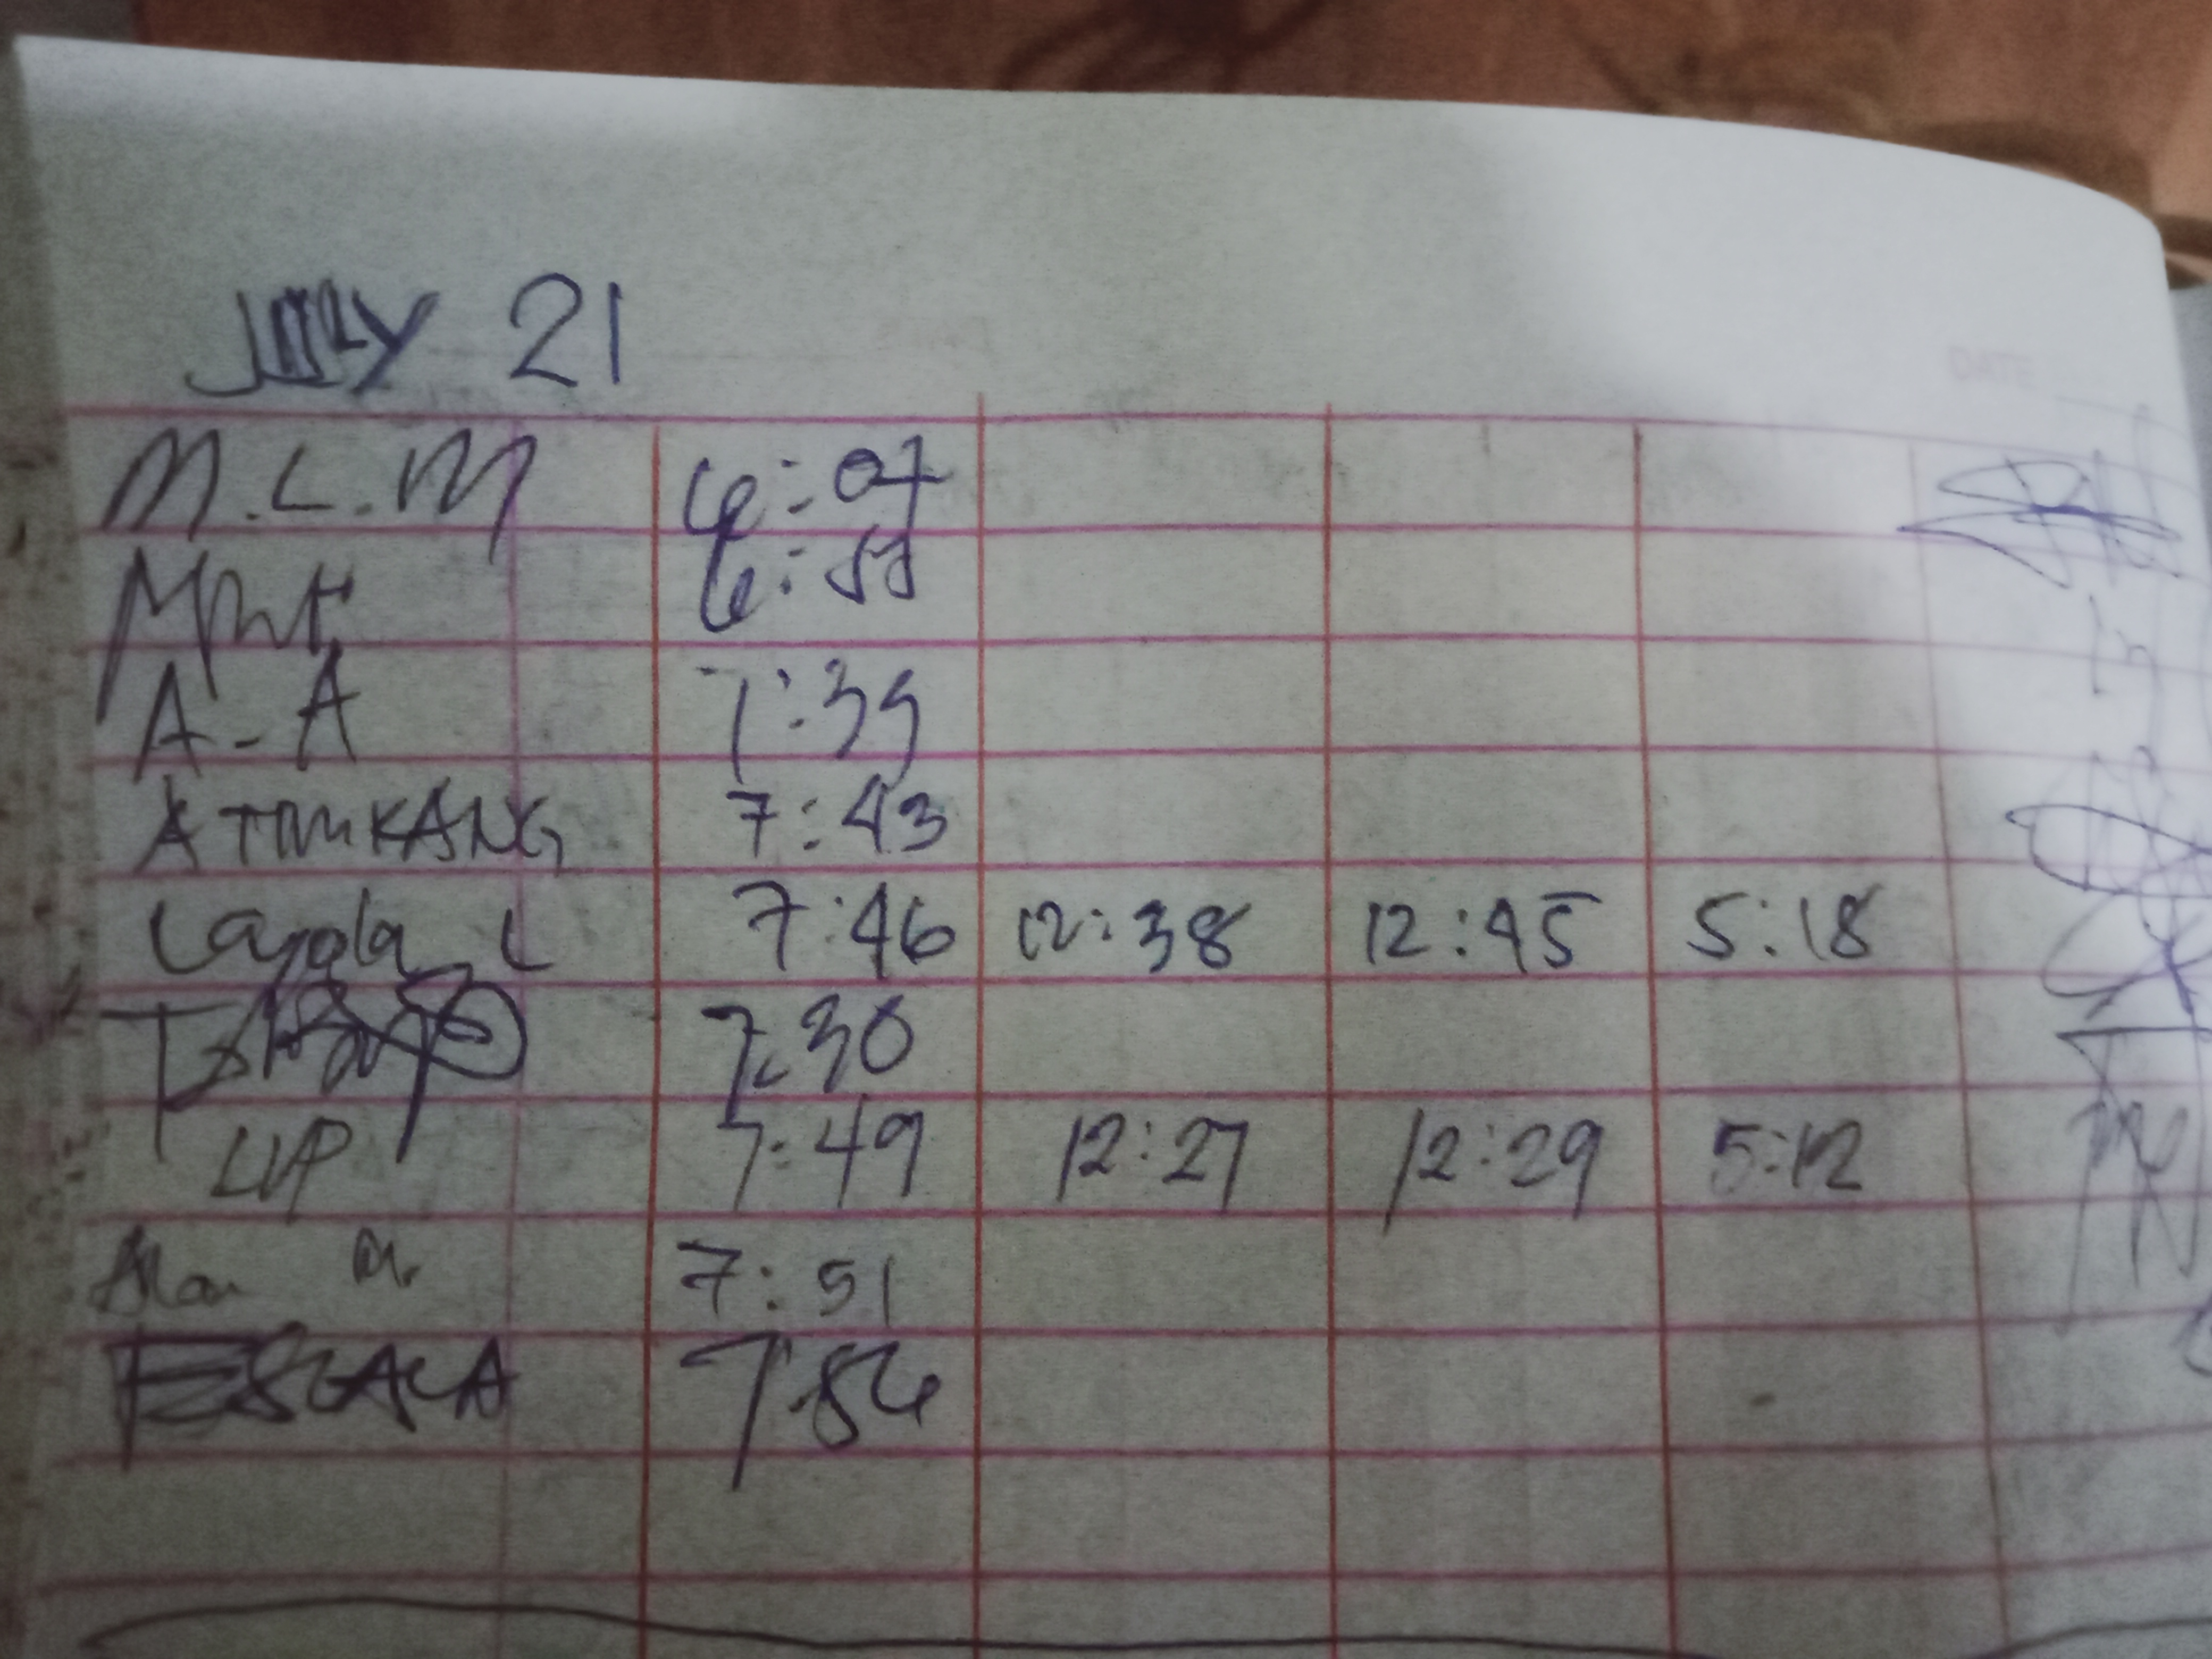 JULY 21
M.L.M 6:07
6:55
A-A 7:39
7:43
Layola L 7:46 12:38 12:45 5:18
7:30
LVP 7:49 12:27 12:29 5:12
7:51
ESCALA
DATE